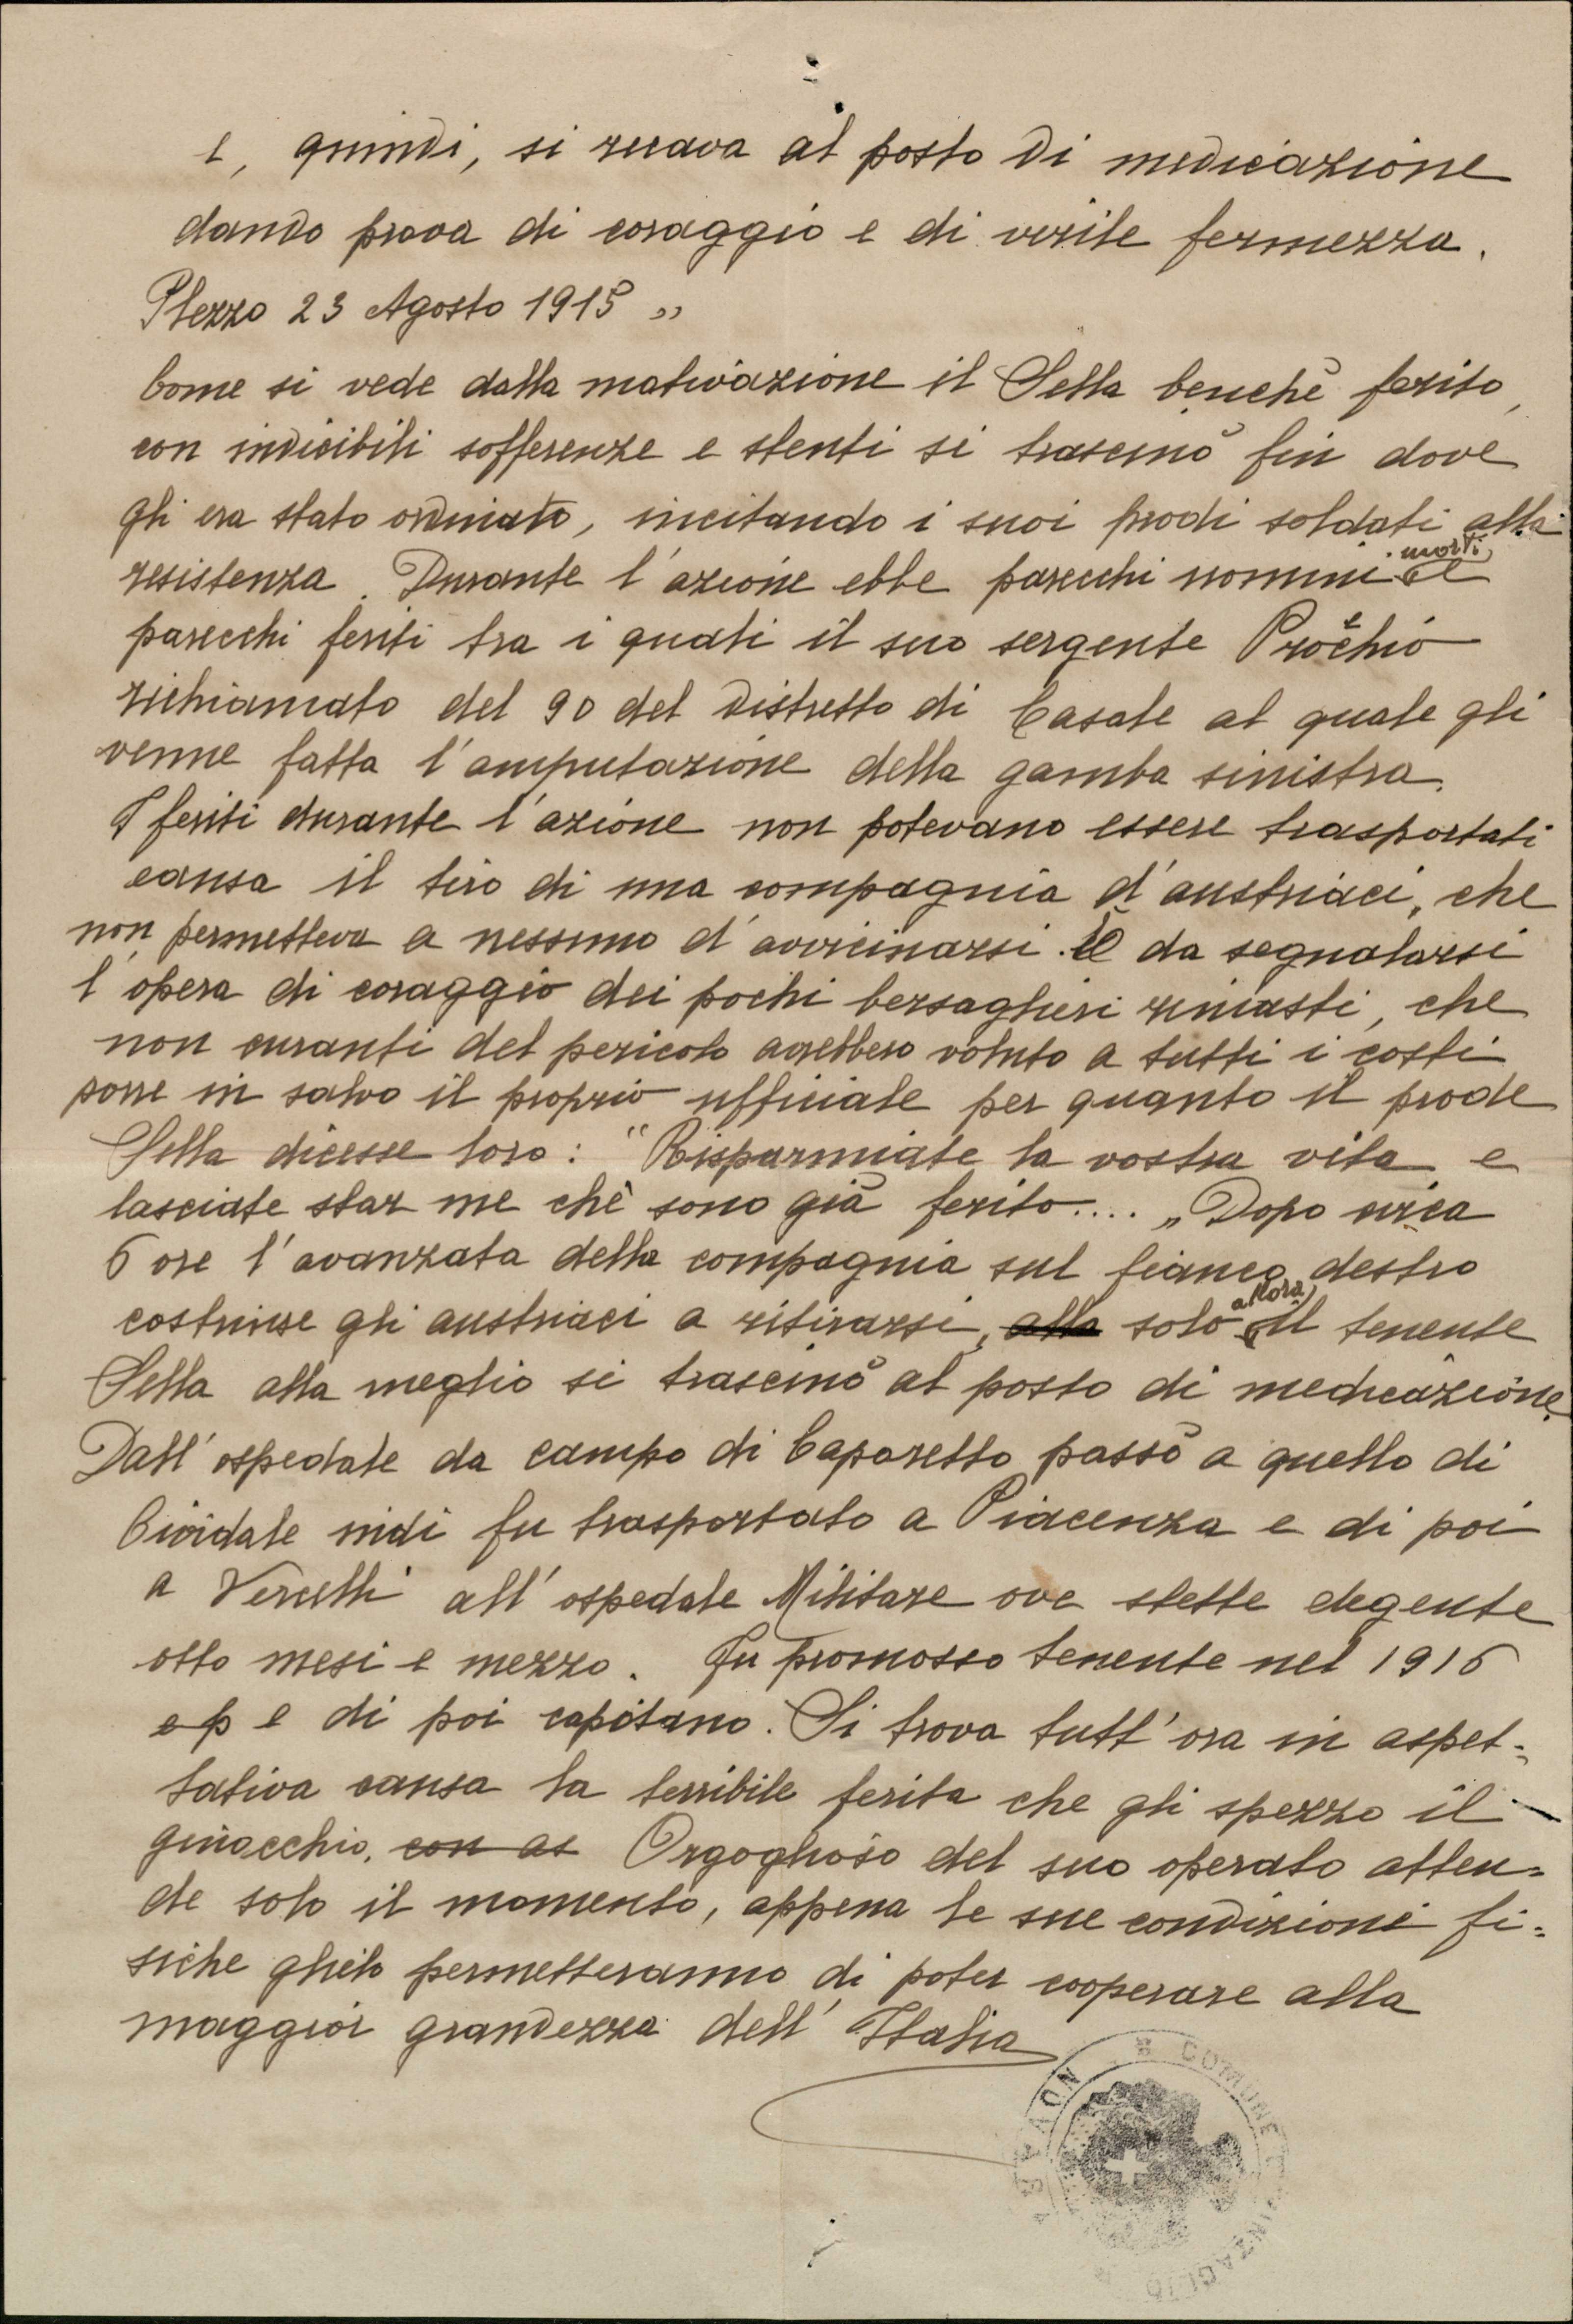 e, quindi, si recava al posto di medicazione
dando prova di coraggio e di virile fermezza.
Plezzo 23 Agosto 1915 „
Come si vede dalla motivazione il Sella benchè ferito,
con indicibili sofferenze e stenti si trascinò fin dove
gli era stato ordinato, incitando i suoi prodi soldati alla
resistenza. Durante l'azione ebbe parecchi uomini morti e
parecchi feriti tra i quali il suo sergente
richiamato del 90 del distretto di Casale al quale gli
venne fatta l'amputazione della gamba sinistra.
I feriti durante l'azione non potevano essere trasportati
causa il tiro di una compagnia d'austriaci, che
non permetteva a nessuno d'avvicinarsi. È da segnalarsi
l'opera di coraggio dei pochi bersaglieri rimasti, che
non curanti del pericolo avrebbero voluto a tutti i costi
porre in salvo il proprio ufficiale per quanto il prode
Sella dicesse loro: "Risparmiate la vostra vita e
lasciate star me chè sono già ferito.... „ Dopo circa
6 ore l'avanzata della compagnia sul fianco destro
costrinse gli austriaci a ritirarsi, alla solo allora il tenente
Sella alla meglio si trascinò al posto di medicazione.
Dall'ospedale da campo di Caporetto passò a quello di
Cividale indi fu trasportato a Piacenza e di poi
a Vercelli all'ospedale Militare ove stette degente
otto mesi e mezzo. Fu promosso tenente nel 1916
e p e di poi capitano. Si trova tutt'ora in aspet=
tativa causa la terribile ferita che gli spezzo il
ginocchio. con as Orgoglioso del suo operato atten=
de solo il momento, appena le sue condizioni fi=
siche glielo permetteranno di poter cooperare alla
maggior grandezza dell'Italia
COMUNE